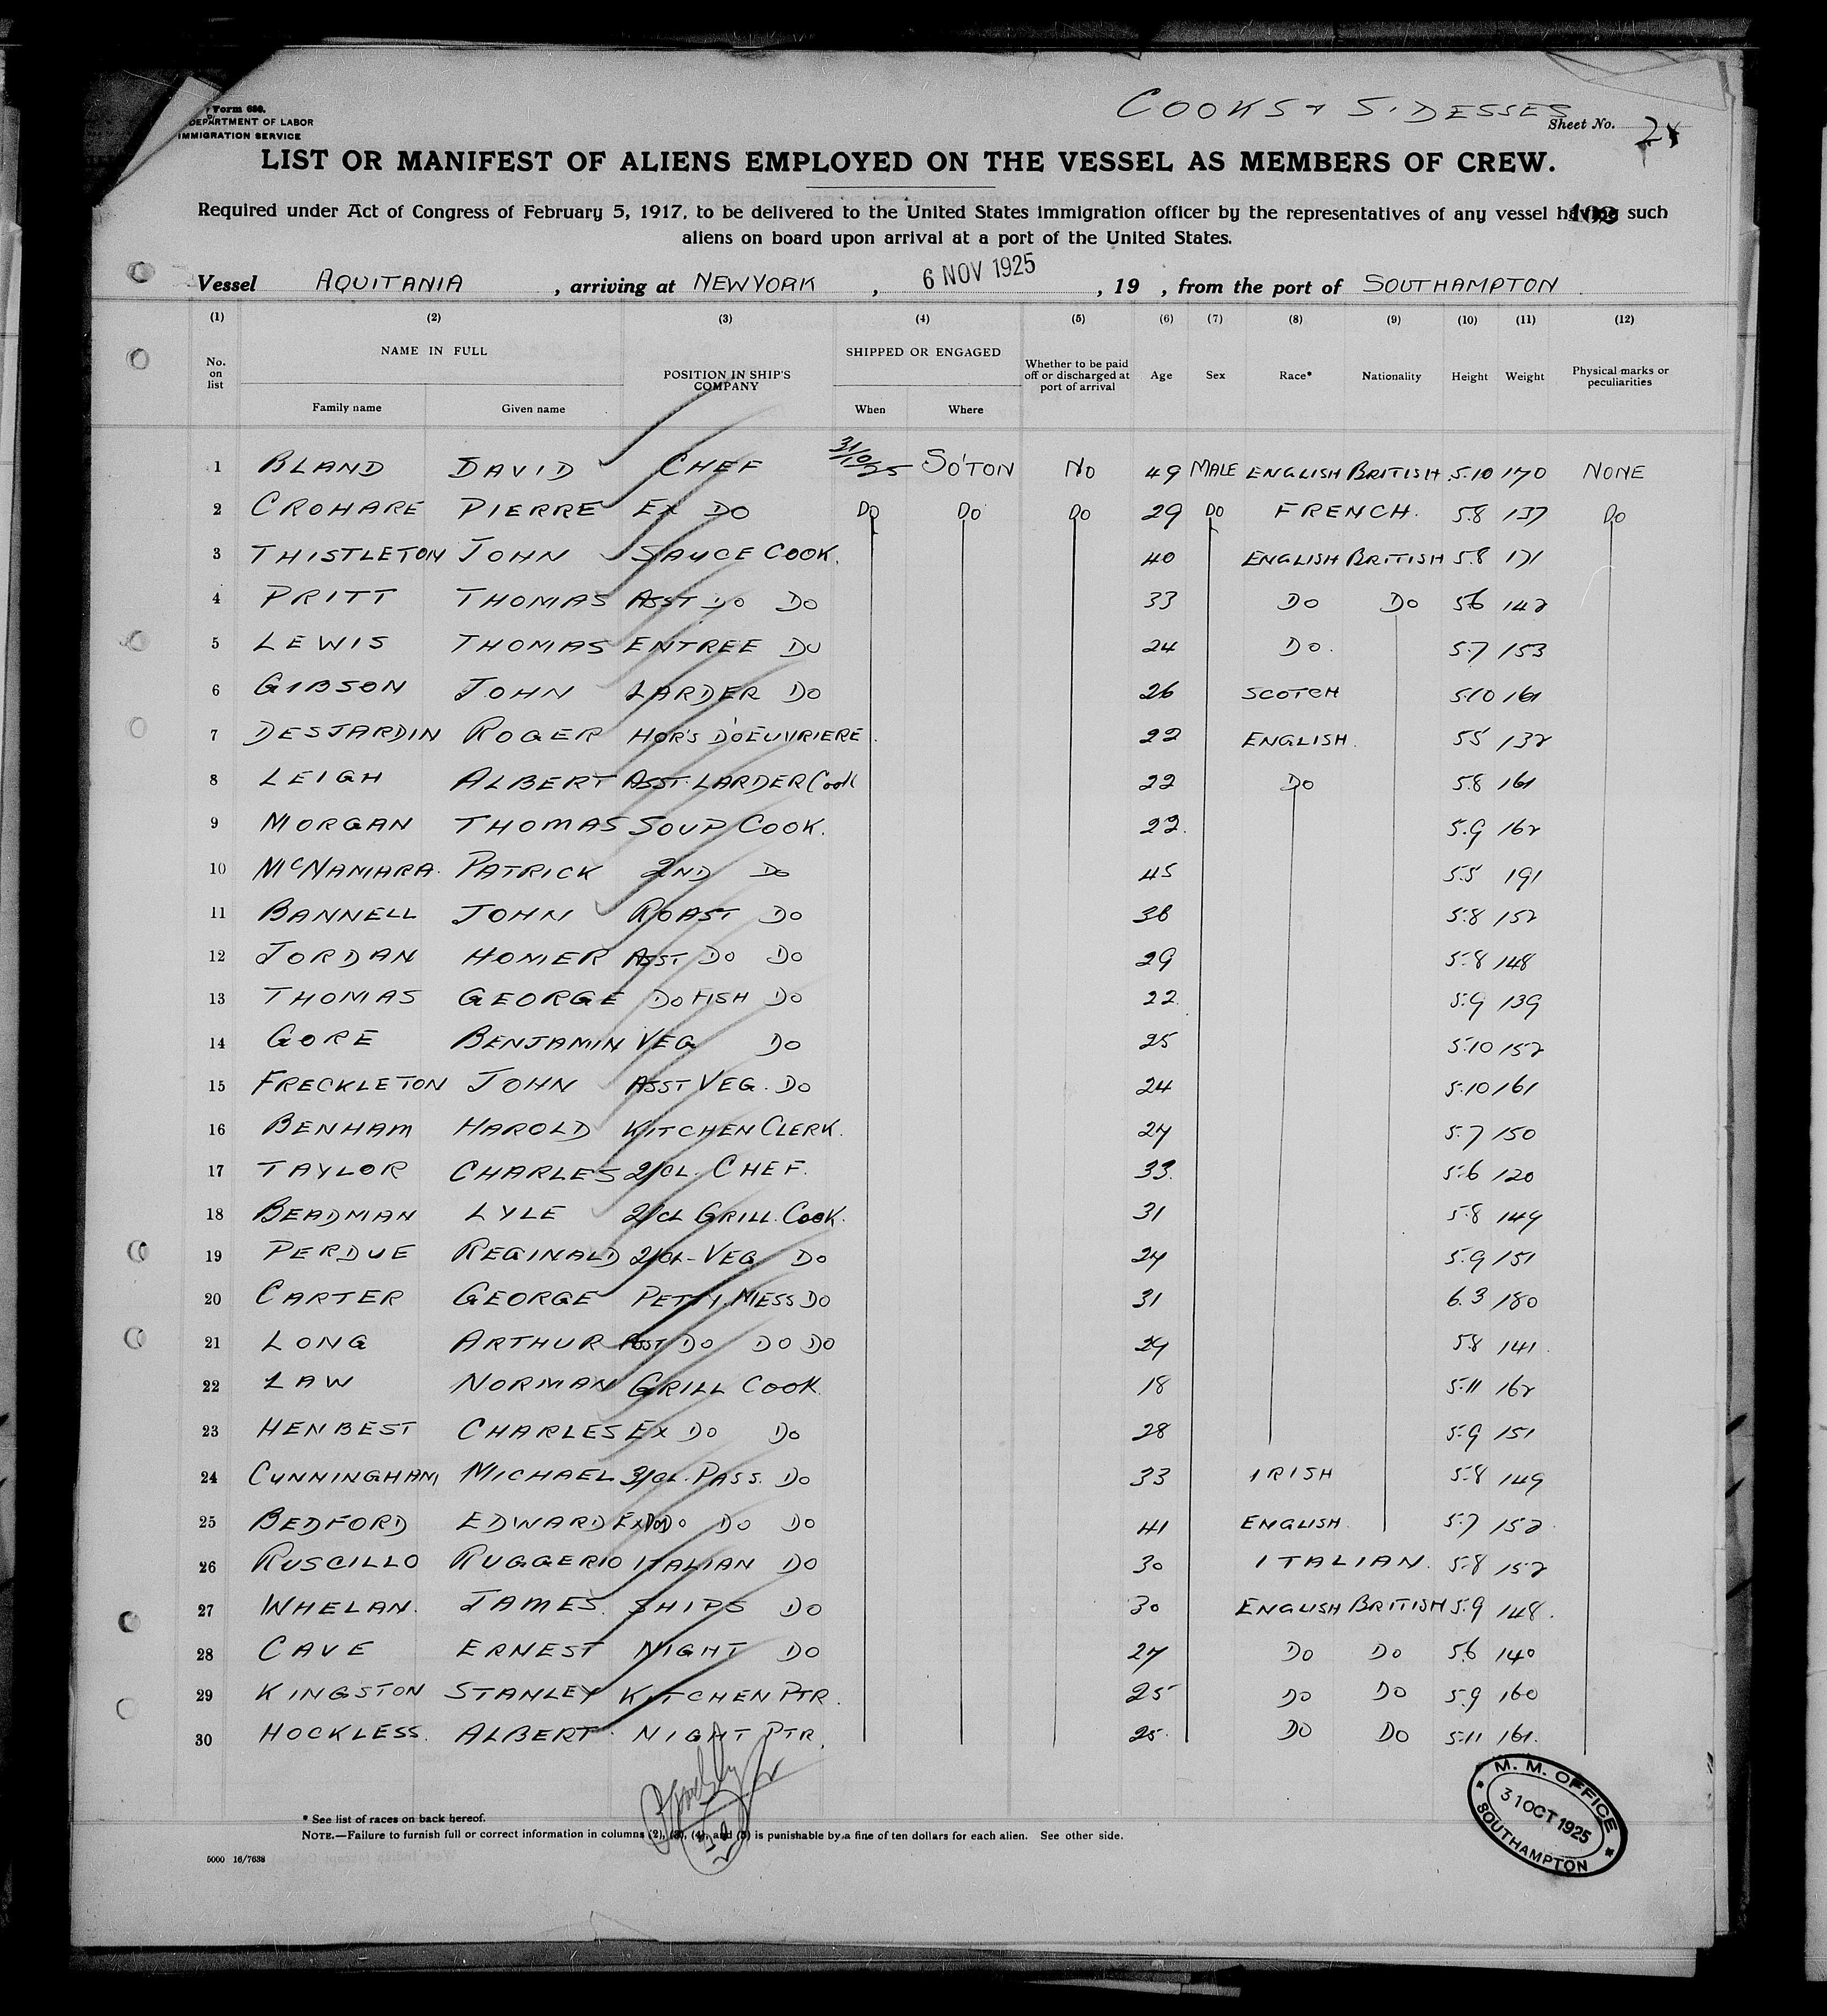 Form 680.
DEPARTMENT OF LABOR
IMMIGRATION SERVICE
COOKS & S.DESSES
Sheet No. 2
LIST OR MANIFEST OF ALIENS EMPLOYED ON THE VESSEL AS MEMBERS OF CREW.
Required under Act of Congress of February 5, 1917, to be delivered to the United States immigration officer by the representatives of any vessel having such
aliens on board upon arrival at a port of the United States.
Vessel AQUITANIA , arriving at NEW YORK , 6 NOV 1925 , 19 , from the port of SOUTHAMPTON
(1) (2) (3) (4) (5) (6) (7) (8) (9) (10) (11) (12)
No. on list NAME IN FULL Family name Given name POSITION IN SHIP'S COMPANY SHIPPED OR ENGAGED When Where Whether to be paid off or discharged at port of arrival Age Sex Race* Nationality Height Weight Physical marks or peculiarities
1 BLAND DAVID CHEF 31/10/25 SO'TON NO 49 MALE ENGLISH BRITISH 5.10 170 NONE
2 CROHARE PIERRE EX DO DO DO DO 29 DO FRENCH. 5.8 137 DO
3 THISTLETON JOHN SAUCE COOK. 40 ENGLISH BRITISH 5.8 171
4 PRITT THOMAS ASST DO DO 33 DO DO 5.6 142
5 LEWIS THOMAS ENTREE DO 24 DO. 5.7 153
6 GIBSON JOHN LARDER DO 26 SCOTCH 5.10 161
7 DESJARDIN ROGER HOR'S D'OEUVRIERE. 22 ENGLISH. 5.5 132
8 LEIGH ALBERT ASST. LARDER Cook 22 DO 5.8 161
9 MORGAN THOMAS SOUP COOK. 22. 5.9 162
10 McNAMARA. PATRICK 2ND DO 45 5.5 191
11 BANNELL JOHN ROAST DO 36 5.8 152
12 JORDAN HOMER ASST DO DO 29 5.8 148
13 THOMAS GEORGE DO FISH DO 22. 5.9 139
14 GORE BENJAMIN VEG DO 25 5.10 152
15 FRECKLETON JOHN ASST VEG. DO 24 5.10 161
16 BENHAM HAROLD KITCHEN CLERK. 27 5.7 150
17 TAYLOR CHARLES 2/CL. CHEF. 33. 5.6 120
18 BEADMAN LYLE 2/CL GRILL. COOK. 31 5.8 149
19 PERDUE REGINALD 2/CL- VEG DO 24 5.9 151
20 CARTER GEORGE PETTY. MESS DO 31 6.3 180
21 LONG ARTHUR ASST DO DO DO 29 5.8 141.
22 LAW NORMAN GRILL COOK. 18 5.11 162
23 HENBEST CHARLES EX DO DO 28 5.9 151
24 CUNNINGHAM, MICHAEL 3/CL. PASS. DO 33 IRISH 5.8 149
25 BEDFORD EDWARD EX DO DO DO 41 ENGLISH. 5.7 152.
26 RUSCILLO RUGGERIO ITALIAN DO 30 ITALIAN. 5.8 152
27 WHELAN. JAMES. SHIPS DO 30 ENGLISH BRITISH 5.9 148.
28 CAVE ERNEST NIGHT DO 27 DO DO 5.6 140
29 KINGSTON STANLEY KITCHEN PTR. 25 DO DO 5.9 160
30 HOCKLESS. ALBERT. NIGHT PTR. 25. DO DO 5.11 161.
* See list of races on back hereof.
NOTE.—Failure to furnish full or correct information in columns (2), (3), (4), and (5) is punishable by a fine of ten dollars for each alien. See other side.
5000 16/7638
M. M. OFFICE
31 OCT 1925
SOUTHAMPTON